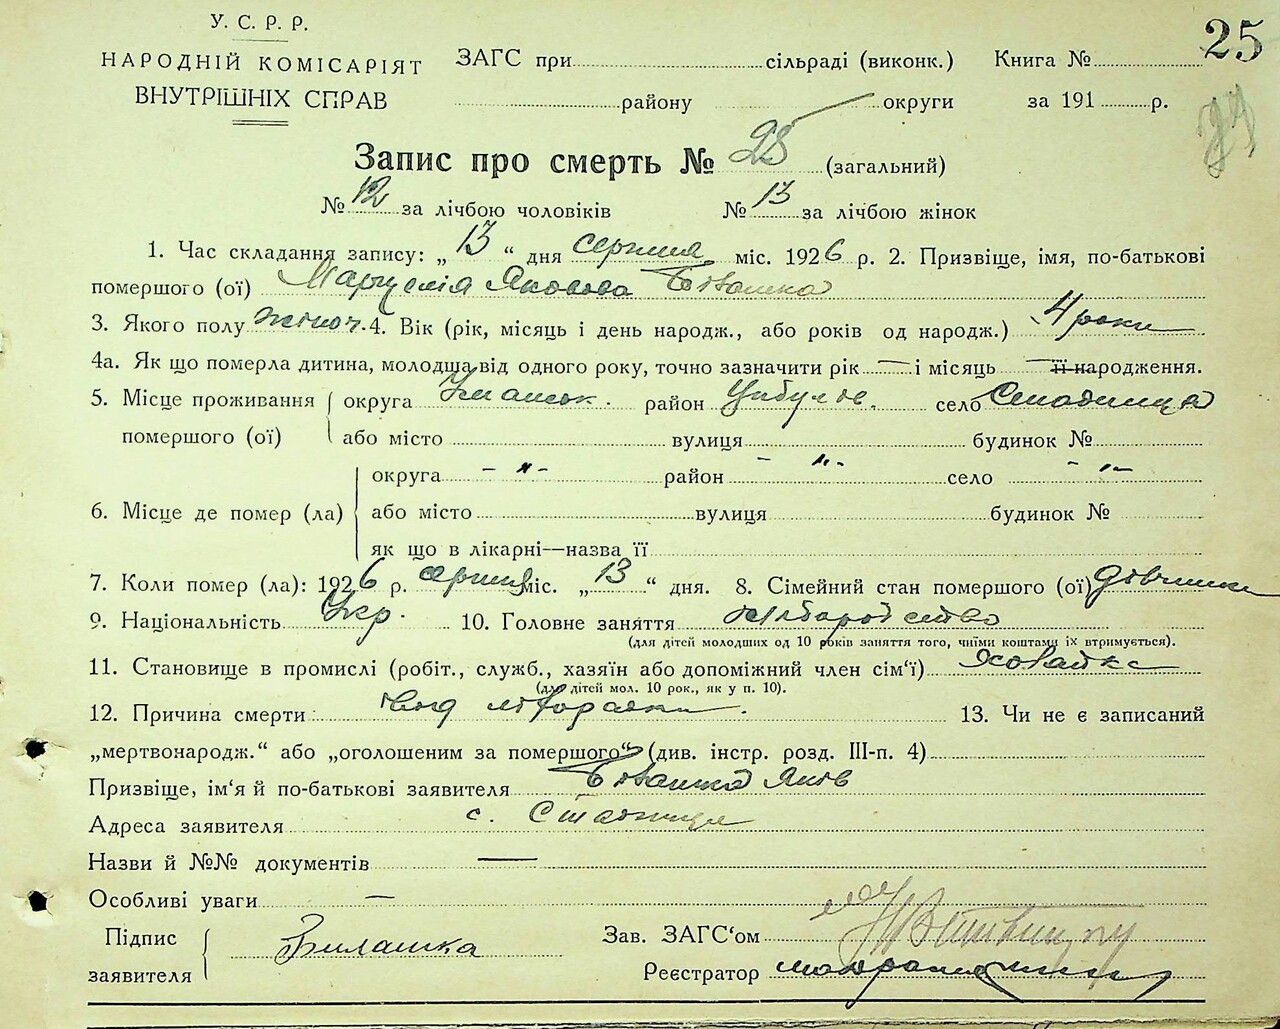 25
У. С. Р. Р.
НАРОДНІЙ КОМІСАРІЯТ
ВНУТРІШНІХ СПРАВ
ЗАГС при сільраді (виконк.) Книга №
району округи за 191 р.
Запис про смерть № 25 (загальний)
№ 12 за лічбою чоловіків № 13 за лічбою жінок
1. Час складання запису: „ 13 “ дня серпня міс. 1926 р. 2. Призвіще, імя, по-батькові
помершого (ої) Яковова
3. Якого полу жіноч. 4. Вік (рік, місяць і день народж., або років од народж.) 4 роки
4а. Як що померла дитина, молодша від одного року, точно зазначити рік — і місяць — її народження.
5. Місце проживання помершого (ої) округа Уманськ. район Цибулів. село
або місто вулиця будинок №
6. Місце де помер (ла) округа - „ - район - „ - село - „ -
або місто вулиця будинок №
як що в лікарні—назва її
7. Коли помер (ла): 1926 р. серпня міс. „ 13 “ дня. 8. Сімейний стан помершого (ої) дівчинка
9. Національність Укр. 10. Головне заняття хліборобство
(для дітей молодших од 10 років заняття того, чиїми коштами їх втримується).
11. Становище в промислі (робіт., служб., хазяїн або допоміжний член сім‘ї)
(для дітей мол. 10 рок., як у п. 10).
12. Причина смерти 13. Чи не є записаний
„мертвонародж.“ або „оголошеним за помершого“ (див. інстр. розд. III-п. 4)
Призвіще, ім‘я й по-батькові заявителя Яків
Адреса заявителя с.
Назви й №№ документів —
Особливі уваги —
Підпис заявителя
Зав. ЗАГС‘ом
Реєстратор